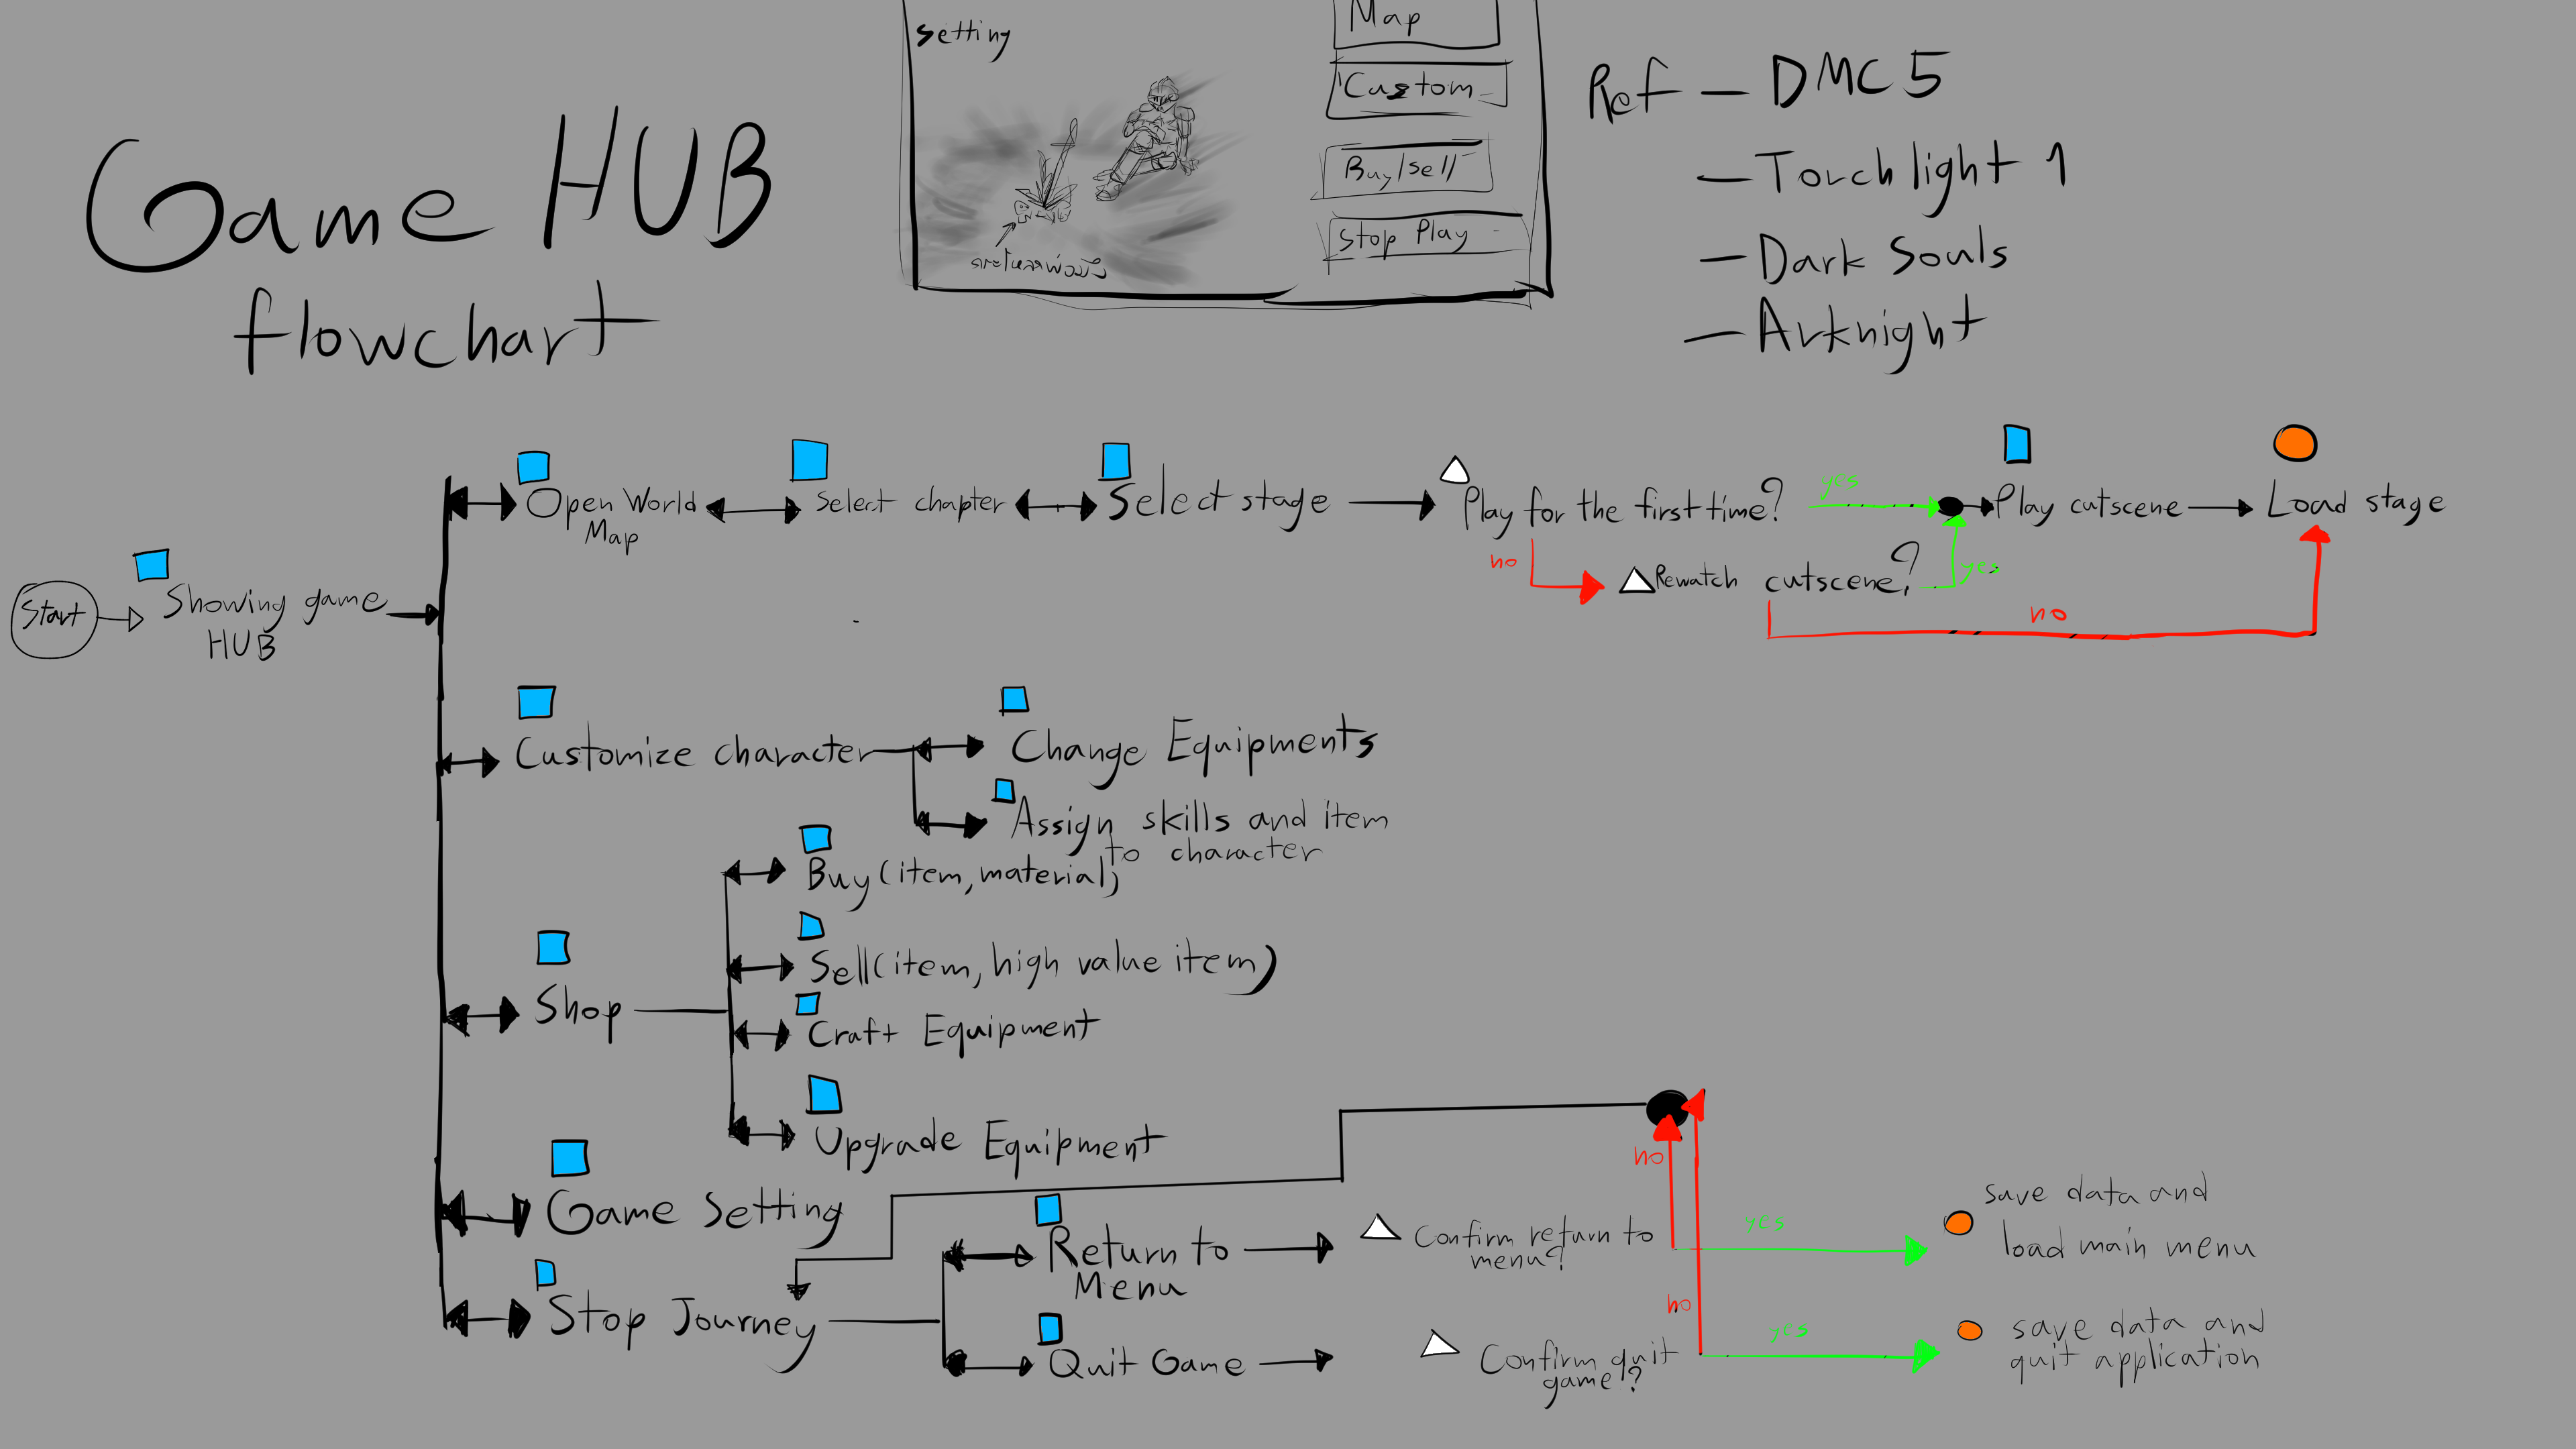 Game HUB
flowchart
Setting
Map
Custom
Buy/sell
Stop Play
Ref — DMC 5
— Torchlight 1
— Dark Souls
— Arknight
Start
Showing game
HUB
Open World
Map
Select chapter
Select stage
Play for the first time?
yes
Play cutscene
Load stage
no
Rewatch cutscene?
yes
no
Customize character
Change Equipments
Assign skills and item
to character
Shop
Buy (item, material)
Sell (item, high value item)
Craft Equipment
Upgrade Equipment
Game Setting
Stop Journey
Return to
Menu
Confirm return to
menu?
no
yes
save data and
load main menu
Quit Game
Confirm quit
game?
no
yes
save data and
quit application